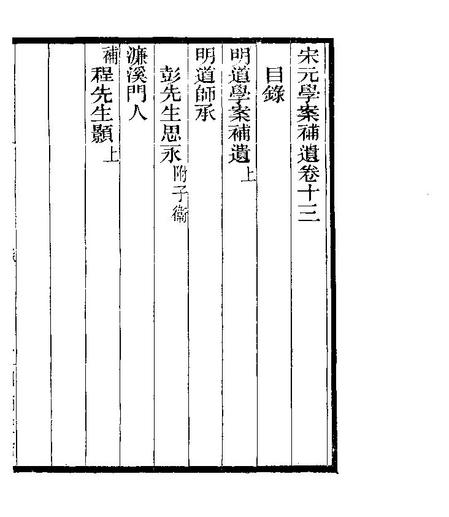 宋元學案補遺卷十三
目錄
明道學案補遺上
明道師承
彭先生思永附子衞
濂溪門人
補程先生顥上